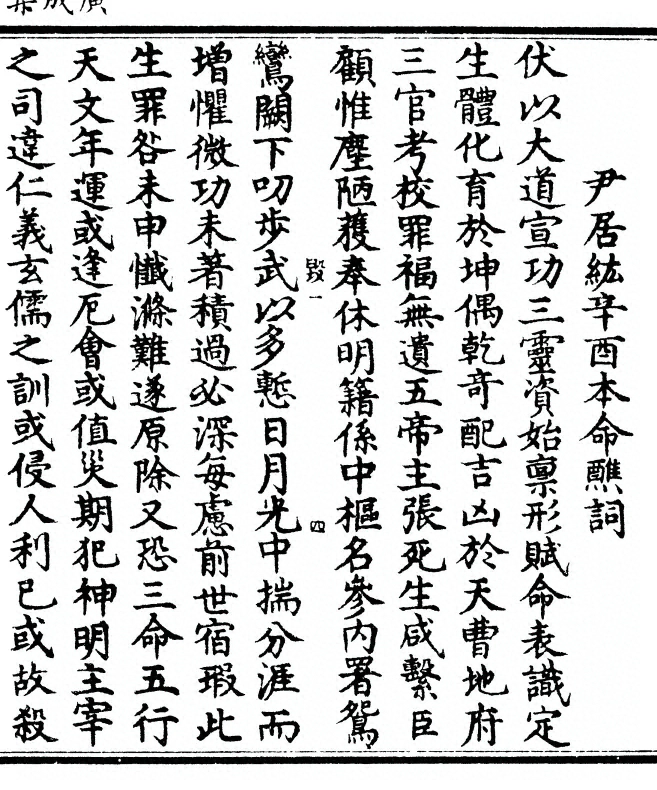 尹居紘辛酉本命醮詞
伏以大道宣功三靈資始禀形賦命表識定
生體化育於坤偶乾竒配吉凶於天曹地府
三官考校罪福無遺五帝主張死生咸繫臣
顧惟塵陋蒦奉休明籍係中樞名參内署鴛
毀一
四
鸞闕下叨歩武以多慙日月光中揣分涯而
增懼微功未著積過必深每慮前世宿瑕此
生罪咎未申懺滌難遂原除又恐三命五行
天文年運或逢厄會或值災期犯神明主宰
之司違仁義玄儒之訓或侵人利已或故殺